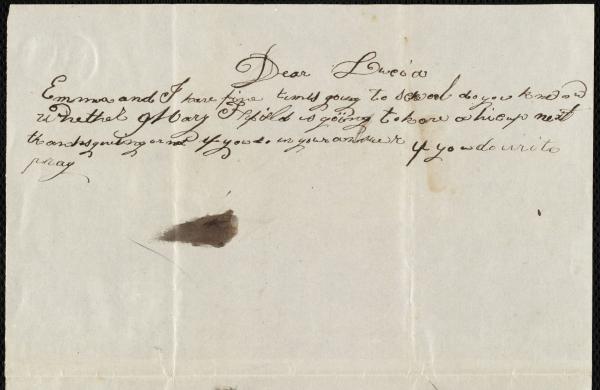 Dear Lucia
Emma and I have fine times going to school do you know
whether Mary Fifild is going to have a hicup next
thanksgiving or not if you do in your answer if you do write
pray